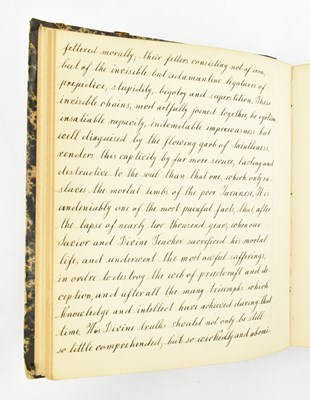 fettered morally; their fetters consisting not of iron,
but of the invisible but adamantine ligatures of
prejudice, stupidity, bigotry and superstition. These
invisible chains, most artfully joined together, by system
insatiable rapacity, indomitable imperiousness but
well disguised by the flowing garb of Saintliness,
renders this captivity by far more secure, lasting and
destructive to the soul than that one, which only en-
slaves the mortal limbs of the poor Javanese. It is
undeniably one of the most painful facts, that, after
the lapse of nearly two thousand years, when our
Savior and Divine Teacher sacrificed his mortal
life, and underwent the most awful sufferings,
in ordre to destroy the web of priestcraft and de-
ception, and after all the many triumphs which
knowledge and intellect have achieved during that
time, His Divine truths should not only be still
so little comprehended, but so wickedly and abomi-